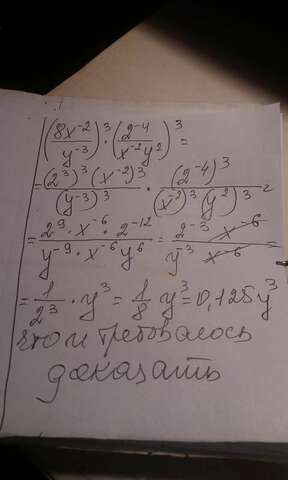 (8x⁻²/y⁻³)³ · (2⁻⁴/x⁻²y²)³ =
= (2³)³(x⁻²)³/(y⁻³)³ · (2⁻⁴)³/(x⁻²)³(y²)³ =
= 2⁹ · x⁻⁶ · 2⁻¹²/y⁻⁹ · x⁻⁶y⁶ = 2⁻³ x⁻⁶/y⁻³ x⁻⁶ =
= 1/2³ · y³ = 1/8 y³ = 0,125y³
что и требовалось
доказать